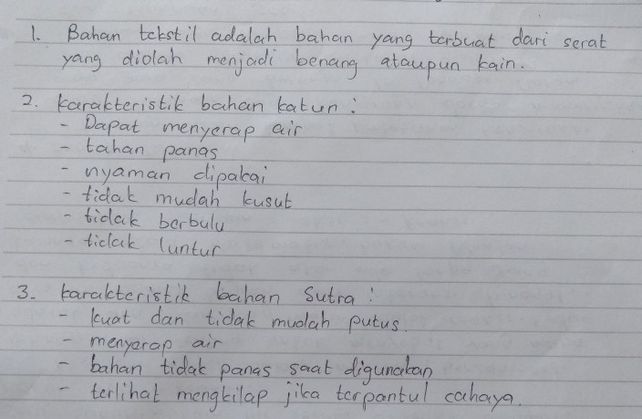 1. Bahan tekstil adalah bahan yang terbuat dari serat
yang diolah menjadi benang ataupun kain.
2. karakteristik bahan katun :
- Dapat menyerap air
- tahan panas
- nyaman dipakai
- tidak mudah kusut
- tidak berbulu
- tidak luntur
3. karakteristik bahan Sutra :
- kuat dan tidak mudah putus.
- menyerap air
- bahan tidak panas saat digunakan
- terlihat mengkilap jika terpantul cahaya.